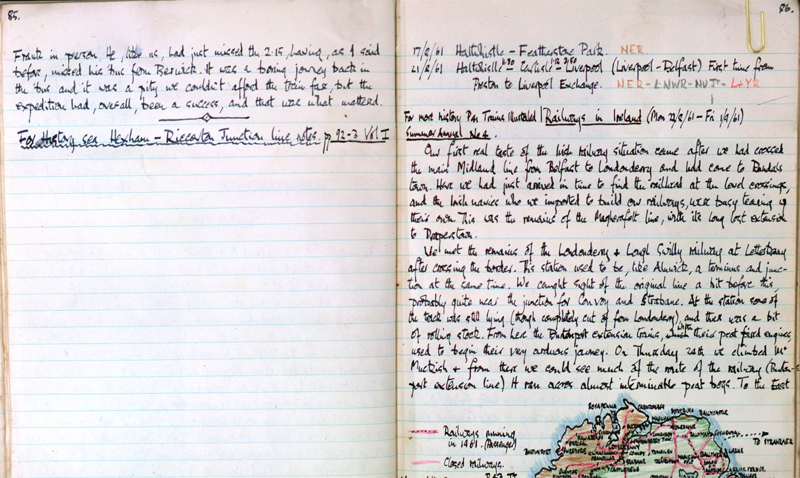 85.
Frank in person. He, like us, had just missed the 2.15, having, as I said
before, missed his bus from Berwick. It was a boring journey back in
the bus and it was a pity we couldn't afford the train fare, but the
expedition had, overall, been a success, and that was what mattered.
For History see Hexham - Riccarton Junction line notes pp 92-3 Vol I
86.
17/8/61 Haltwhistle - Featherstone Park. NER
21/8/61 Haltwhistle - Carlisle - Liverpool (Liverpool - Belfast) First time from
Preston to Liverpool Exchange. NER - LNWR - L+YR
For more history Pas Trains Illustrated Railways in Ireland (Mon 22/8/61 - Fri 1/9/61)
Summer Annual No 6.
Our first real taste of the Irish railway situation came after we had crossed
the main Midland line from Belfast to Londonderry and had come to
town. Here we had just arrived in time to find the railhead at the level crossings,
and the Irish navvies who we imported to build our railways, were busy tearing up
their own. This was the remains of the Magherafelt line, with its long lost extension
to Draperstown.
We met the remains of the Londonderry + Lough Swilly railway at Letterkenny
after crossing the border. This station used to be, like Alnwick, a terminus and junc-
tion at the same time. We caught sight of the original line a bit before this,
probably quite near the junction for Convoy and Strabane. At the station some of
the track was still lying (though completely cut off from Londonderry), and there was a bit
of rolling stock. From here the Burtonport extension trains, with their peat fired engines,
used to begin their very arduous journey. On Thursday 24th we climbed Mt
Muckish + from there we could see much of the route of the railway (Burton-
port extension line) It ran across almost interminable peat bogs. To the East
Railways running
in 1961. (Passenger)
Closed railways.
TO STRANRAER